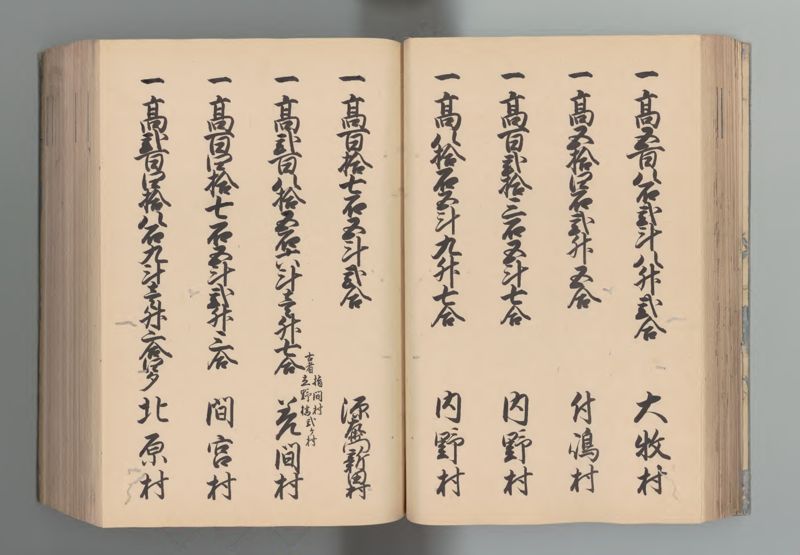 一高五百八石弐斗八升弐合 大牧村
一高五拾四石弐升五合 付嶋村
一高百弐拾三石五斗七合 内野村
一高八拾石五斗九升七合 内野村
一高百拾七石五斗弐合 源兵衛新田村
一高弐百八拾五石六斗壱升七合 差間村
古者指間村
立野村弐ヶ村
一高百四拾七石五斗弐升三合 間宮村
一高弐百四拾八石九斗壱升三合四夕 北原村